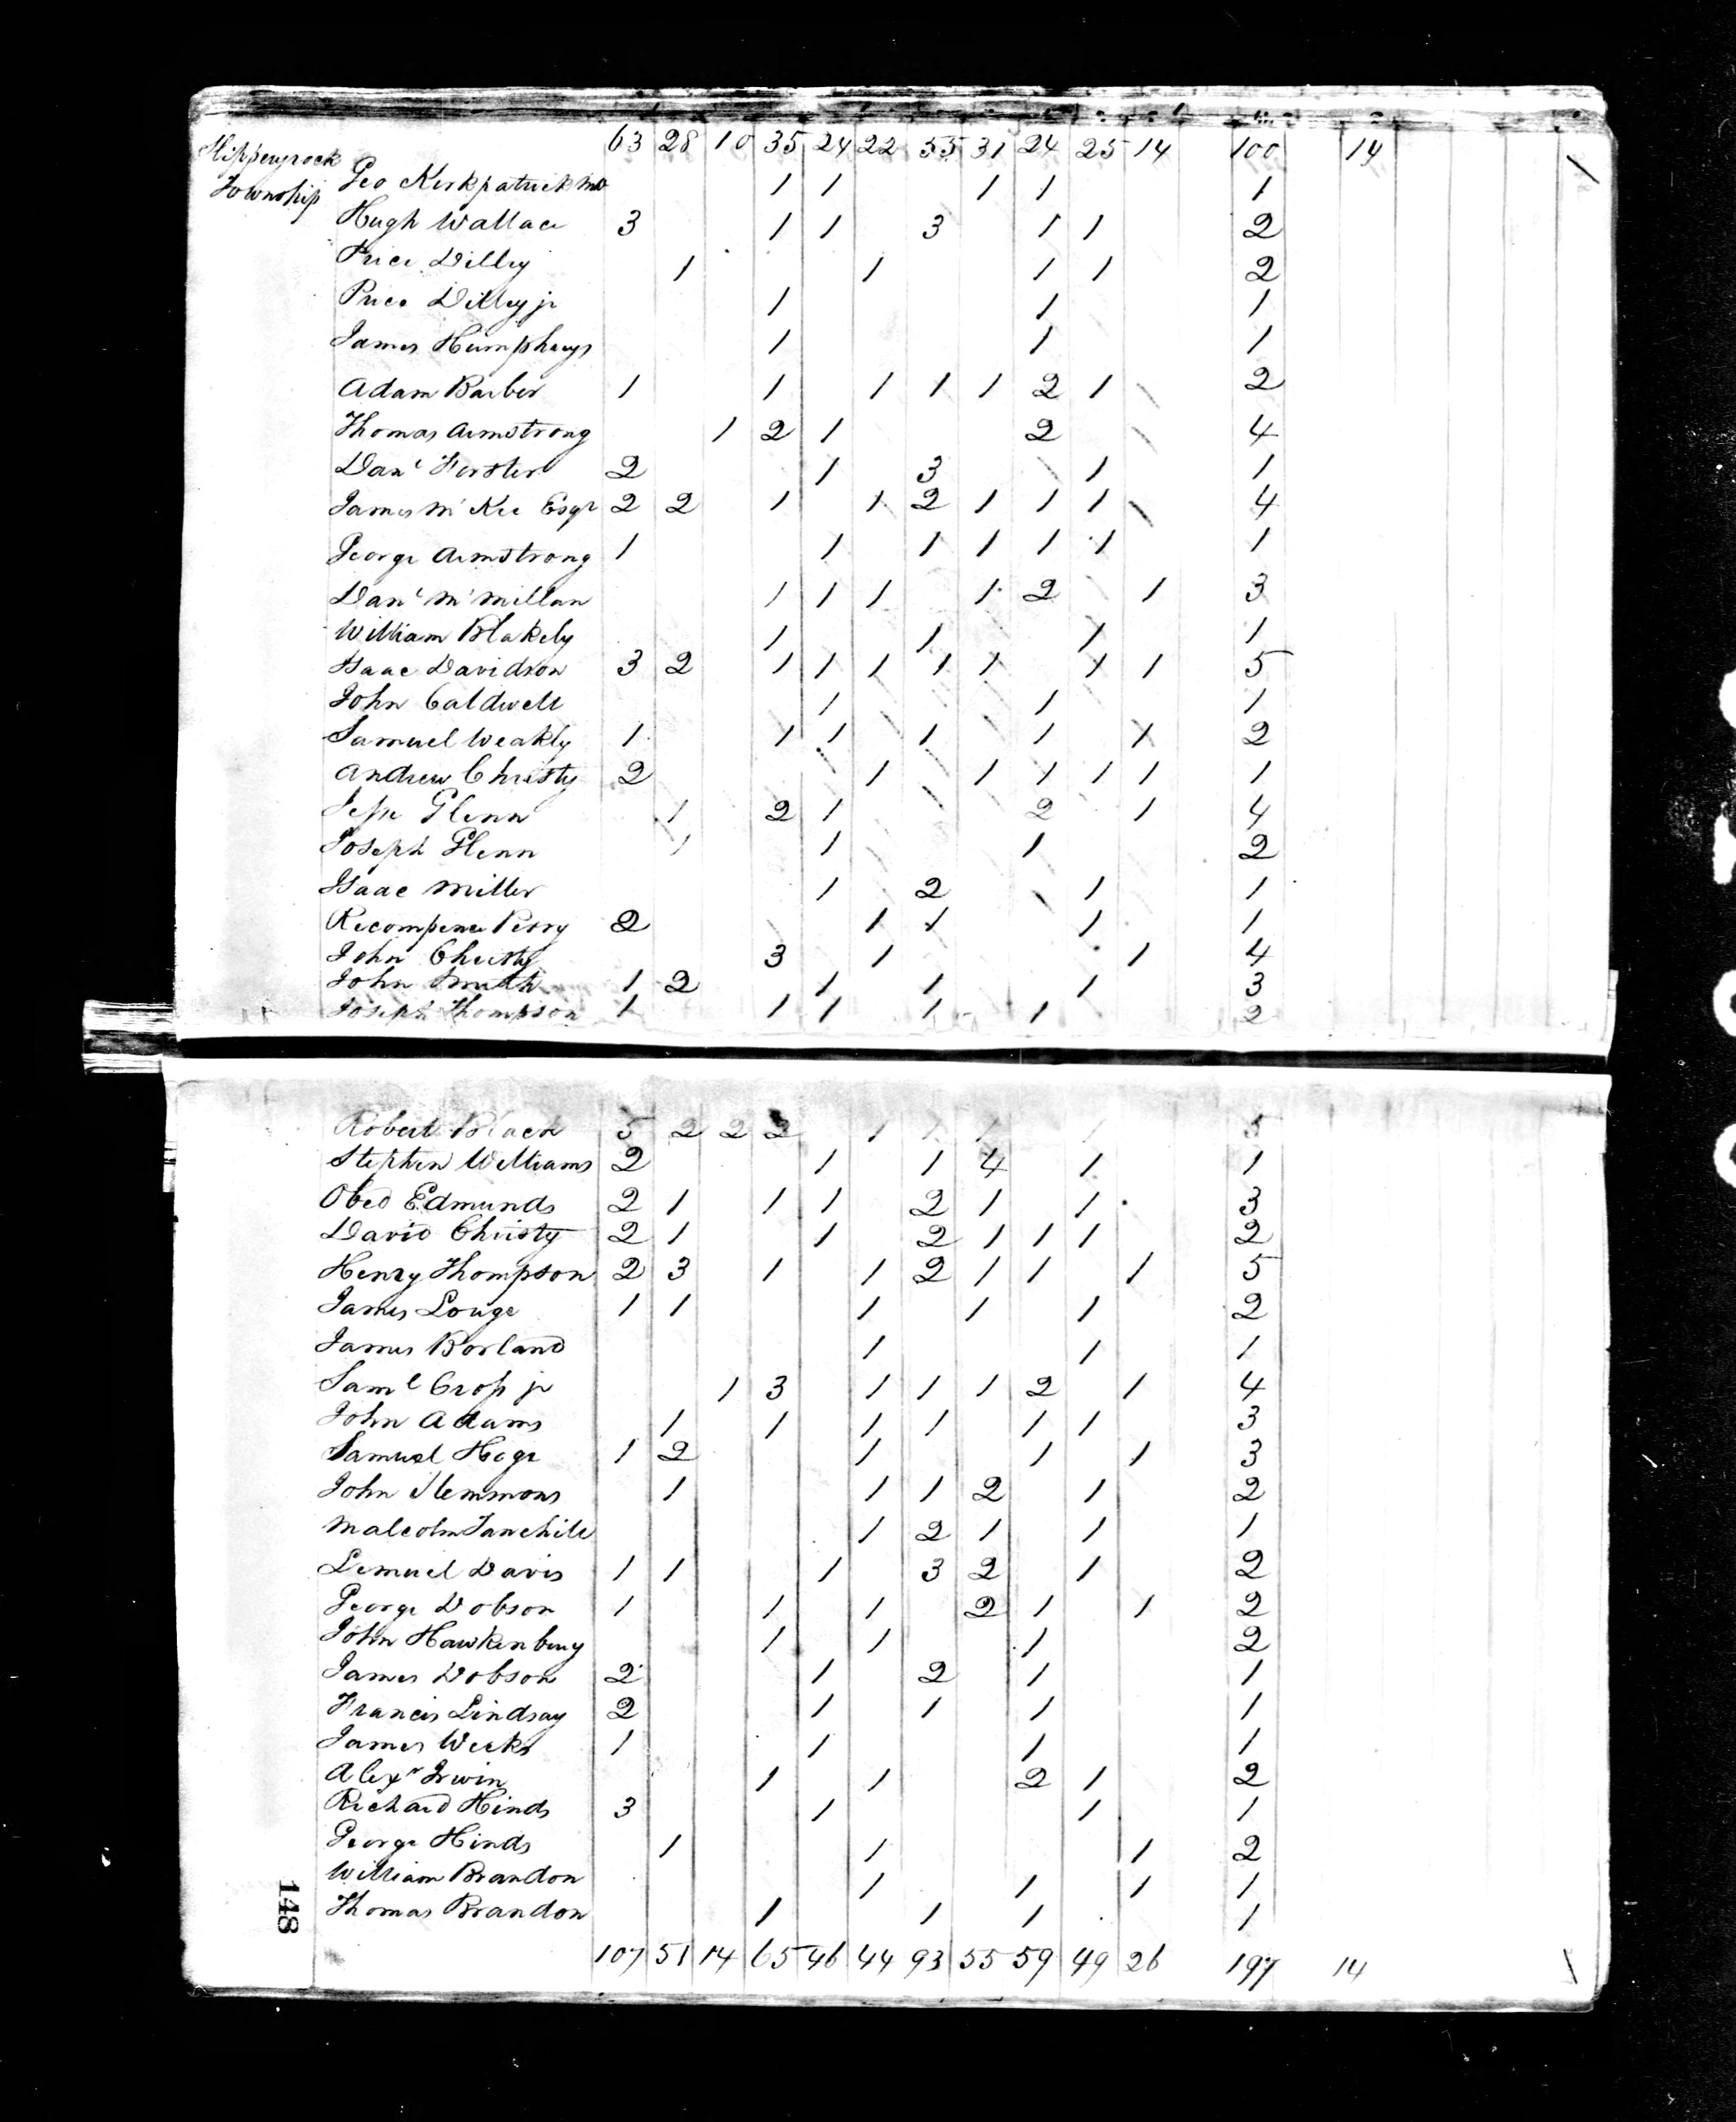 63 28 10 35 24 22 55 31 24 25 14 100 14
Slipperyrock
Township
Geo Kirkpatrick 1 1 1 1 1
Hugh Wallace 3 1 1 3 1 1 2
Price Dilley 1 1 1 1 2
Price Dilley jr 1 1 1
James Humphreys 1 1 1
Adam Barber 1 1 1 1 1 2 1 2
Thomas Armstrong 1 2 1 2 4
Danl Forster 2 1 3 1 1
James McKee Esqr 2 2 1 1 2 1 1 1 4
George Armstrong 1 1 1 1 1 1 1
Danl McMillan 1 1 1 1 2 1 3
William Blakely 1 1 1 1
Isaac Davidson 3 2 1 1 1 1 1 1 1 5
John Caldwell 1 1 1
Samuel Weakly 1 1 1 1 1 1 2
Andrew Christy 2 1 1 1 1 1 1
Jesse Glenn 1 2 1 2 1 4
Joseph Glenn 1 1 1 2
Isaac Miller 1 2 1 1
Recompence Perry 2 1 1 1 1
John Christy 3 1 1 4
John Smith 1 2 1 1 1 3
Joseph Thompson 1 1 1 1 1 2
Robert Black 5 2 2 2 1 1 1 1 5
Stephen Williams 2 1 1 4 1 1
Obed Edmunds 2 1 1 1 2 1 1 3
David Christy 2 1 1 2 1 1 1 2
Henry Thompson 2 3 1 1 2 1 1 1 5
James Louge 1 1 1 1 1 2
James Borland 1 1 1
Saml Cross jr 1 3 1 1 1 2 1 4
John Adams 1 1 1 1 1 1 3
Samuel Hoge 1 2 1 1 1 3
John Slemmons 1 1 1 2 1 2
Malcolm 1 2 1 1 1
Lemuel Davis 1 1 1 3 2 1 2
George Dobson 1 1 1 2 1 1 2
John Hawkenbury 1 1 1 2
James Dobson 2 1 2 1 1
Francis Lindsay 2 1 1 1 1
James Weeks 1 1 1 1
Alexr Irwin 1 1 2 1 2
Richard Hinds 3 1 1 1
George Hinds 1 1 1 2
William Brandon 1 1 1 1
Thomas Brandon 1 1 1 1
107 51 14 65 46 44 93 55 59 49 26 197 14
148